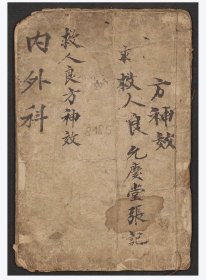 方神效
救人良
元慶堂張記
救人良方神效
内外科